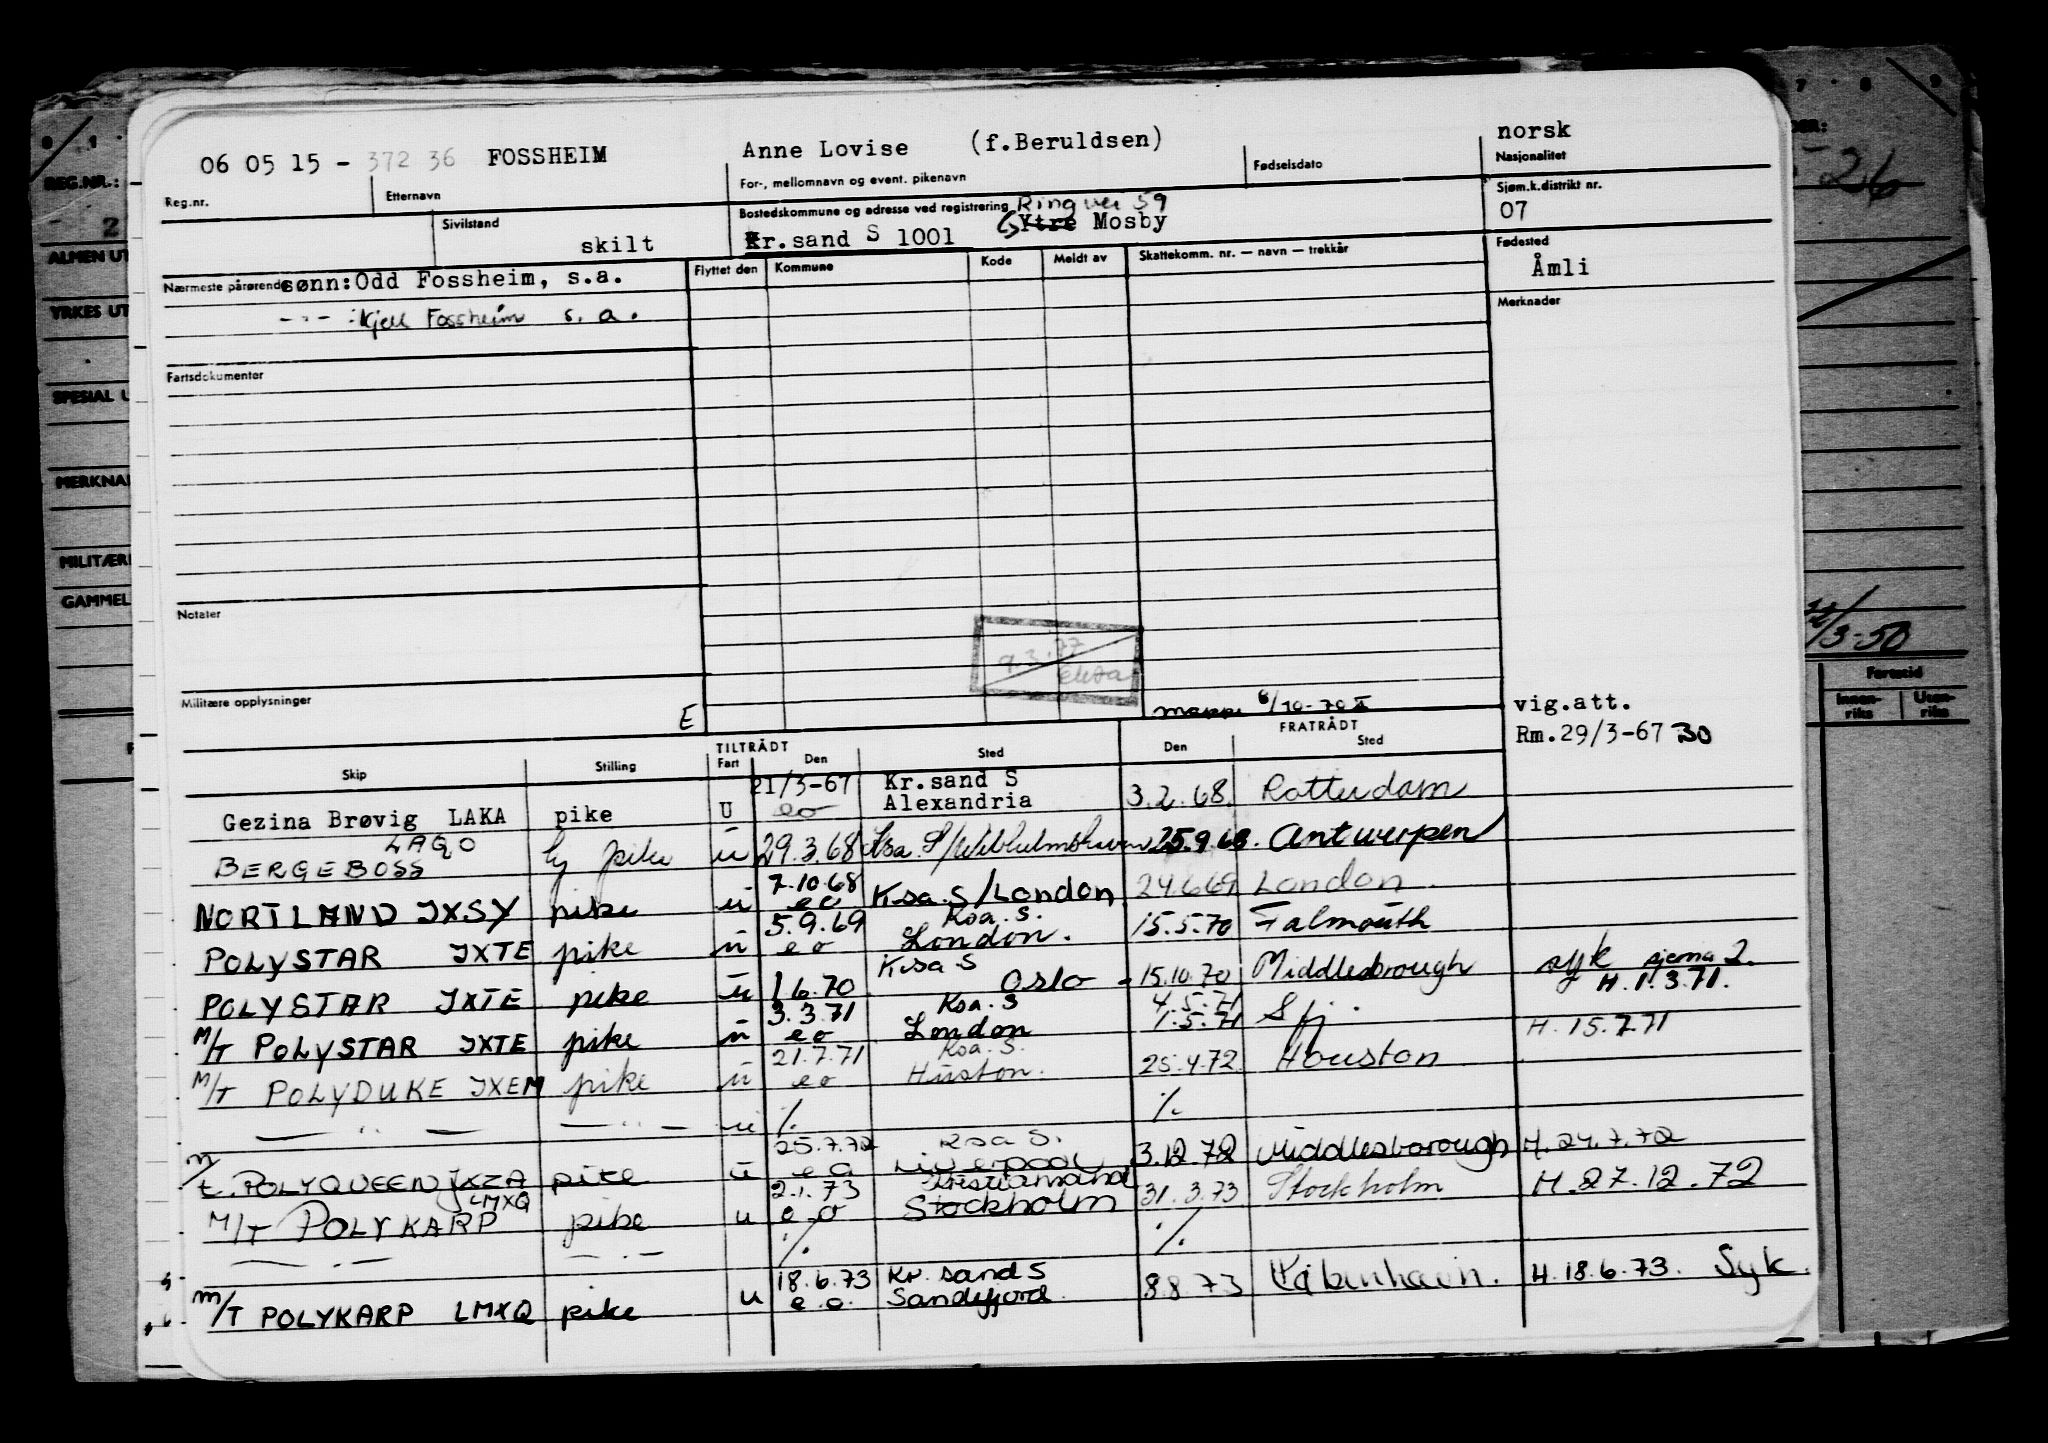 06 05 15 - 372 36 FOSSHEIM Anne Lovise (f.Beruldsen) norsk
Reg.nr. Etternavn For-, mellomnavn og event. pikenavn Fødselsdato Nasjonalitet
Sivilstand skilt Bostedskommune og adresse ved registrering Ringvei 59 Sjøm.k.distrikt nr.
Kr.sand S 1001 Ytre Mosby 07
Nærmeste pårørende sønn:Odd Fossheim, s.a. Flyttet den Kommune Kode Meldt av Skattekomm. nr. — navn — trekkår Fødested
Åmli
- " - :Kjell Fossheim s.a. Merknader
Fartsdokumenter
Notater
9.3.77
Militære opplysninger E 6/10-70 vig.att.
Rm.29/3-67 30
TILTRÅDT FRATRÅDT
Skip Stilling Fart Den Sted Den Sted
21/3-67 Kr.sand S
Gezina Brøvig LAKA pike U eo Alexandria 3.2.68. Rotterdam
LAQO
BERGEBOSS pike u 29.3.68 Ksa. S/Wilhelmshaven 25.9.68. Antwerpen
7.10.68
NORTLAND JXSY pike u eo Ksa. S/London 24.6.69 London
5.9.69 Ksa. S.
POLYSTAR JXTE pike u eo London. 15.5.70 Falmouth
Ksa S
POLYSTAR JXTE pike u 1.6.70 Oslo - 15.10.70 Middlesbrough syk sjema 2.
H. 1.3.71.
3.3.71 Ksa. S 4.5.71
M/T POLYSTAR JXTE pike u eo London 1.5.71 Sfj. H. 15.7.71
21.7.71 Ksa. S.
M/T POLYDUKE JXEM pike u eo Huston. 25.4.72 Houston
— " — — " — u ./. ./.
25.7.72 Ksa S.
M/T. POLYQUEEN JXZA pike u eo Liverpool 3.12.72 Middlesborough H. 24.7.72
LMXQ 2.1.73 Kristiansand
M/T POLYKARP pike u eo Stockholm 31.3.73 Stockholm H. 27.12.72
— " — — " — ./. ./.
18.6.73 Kr. sand S
M/T POLYKARP LMXQ pike u e.o. Sandefjord 8.8.73 København. H. 18.6.73. Syk.
REG.NR.:
2
ALMEN UT
YRKES UT
SPECIAL U
MERKNA
MILITÆR
GAMMEL
26
/3-50
Fartstid
Innen-riks Uten-riks